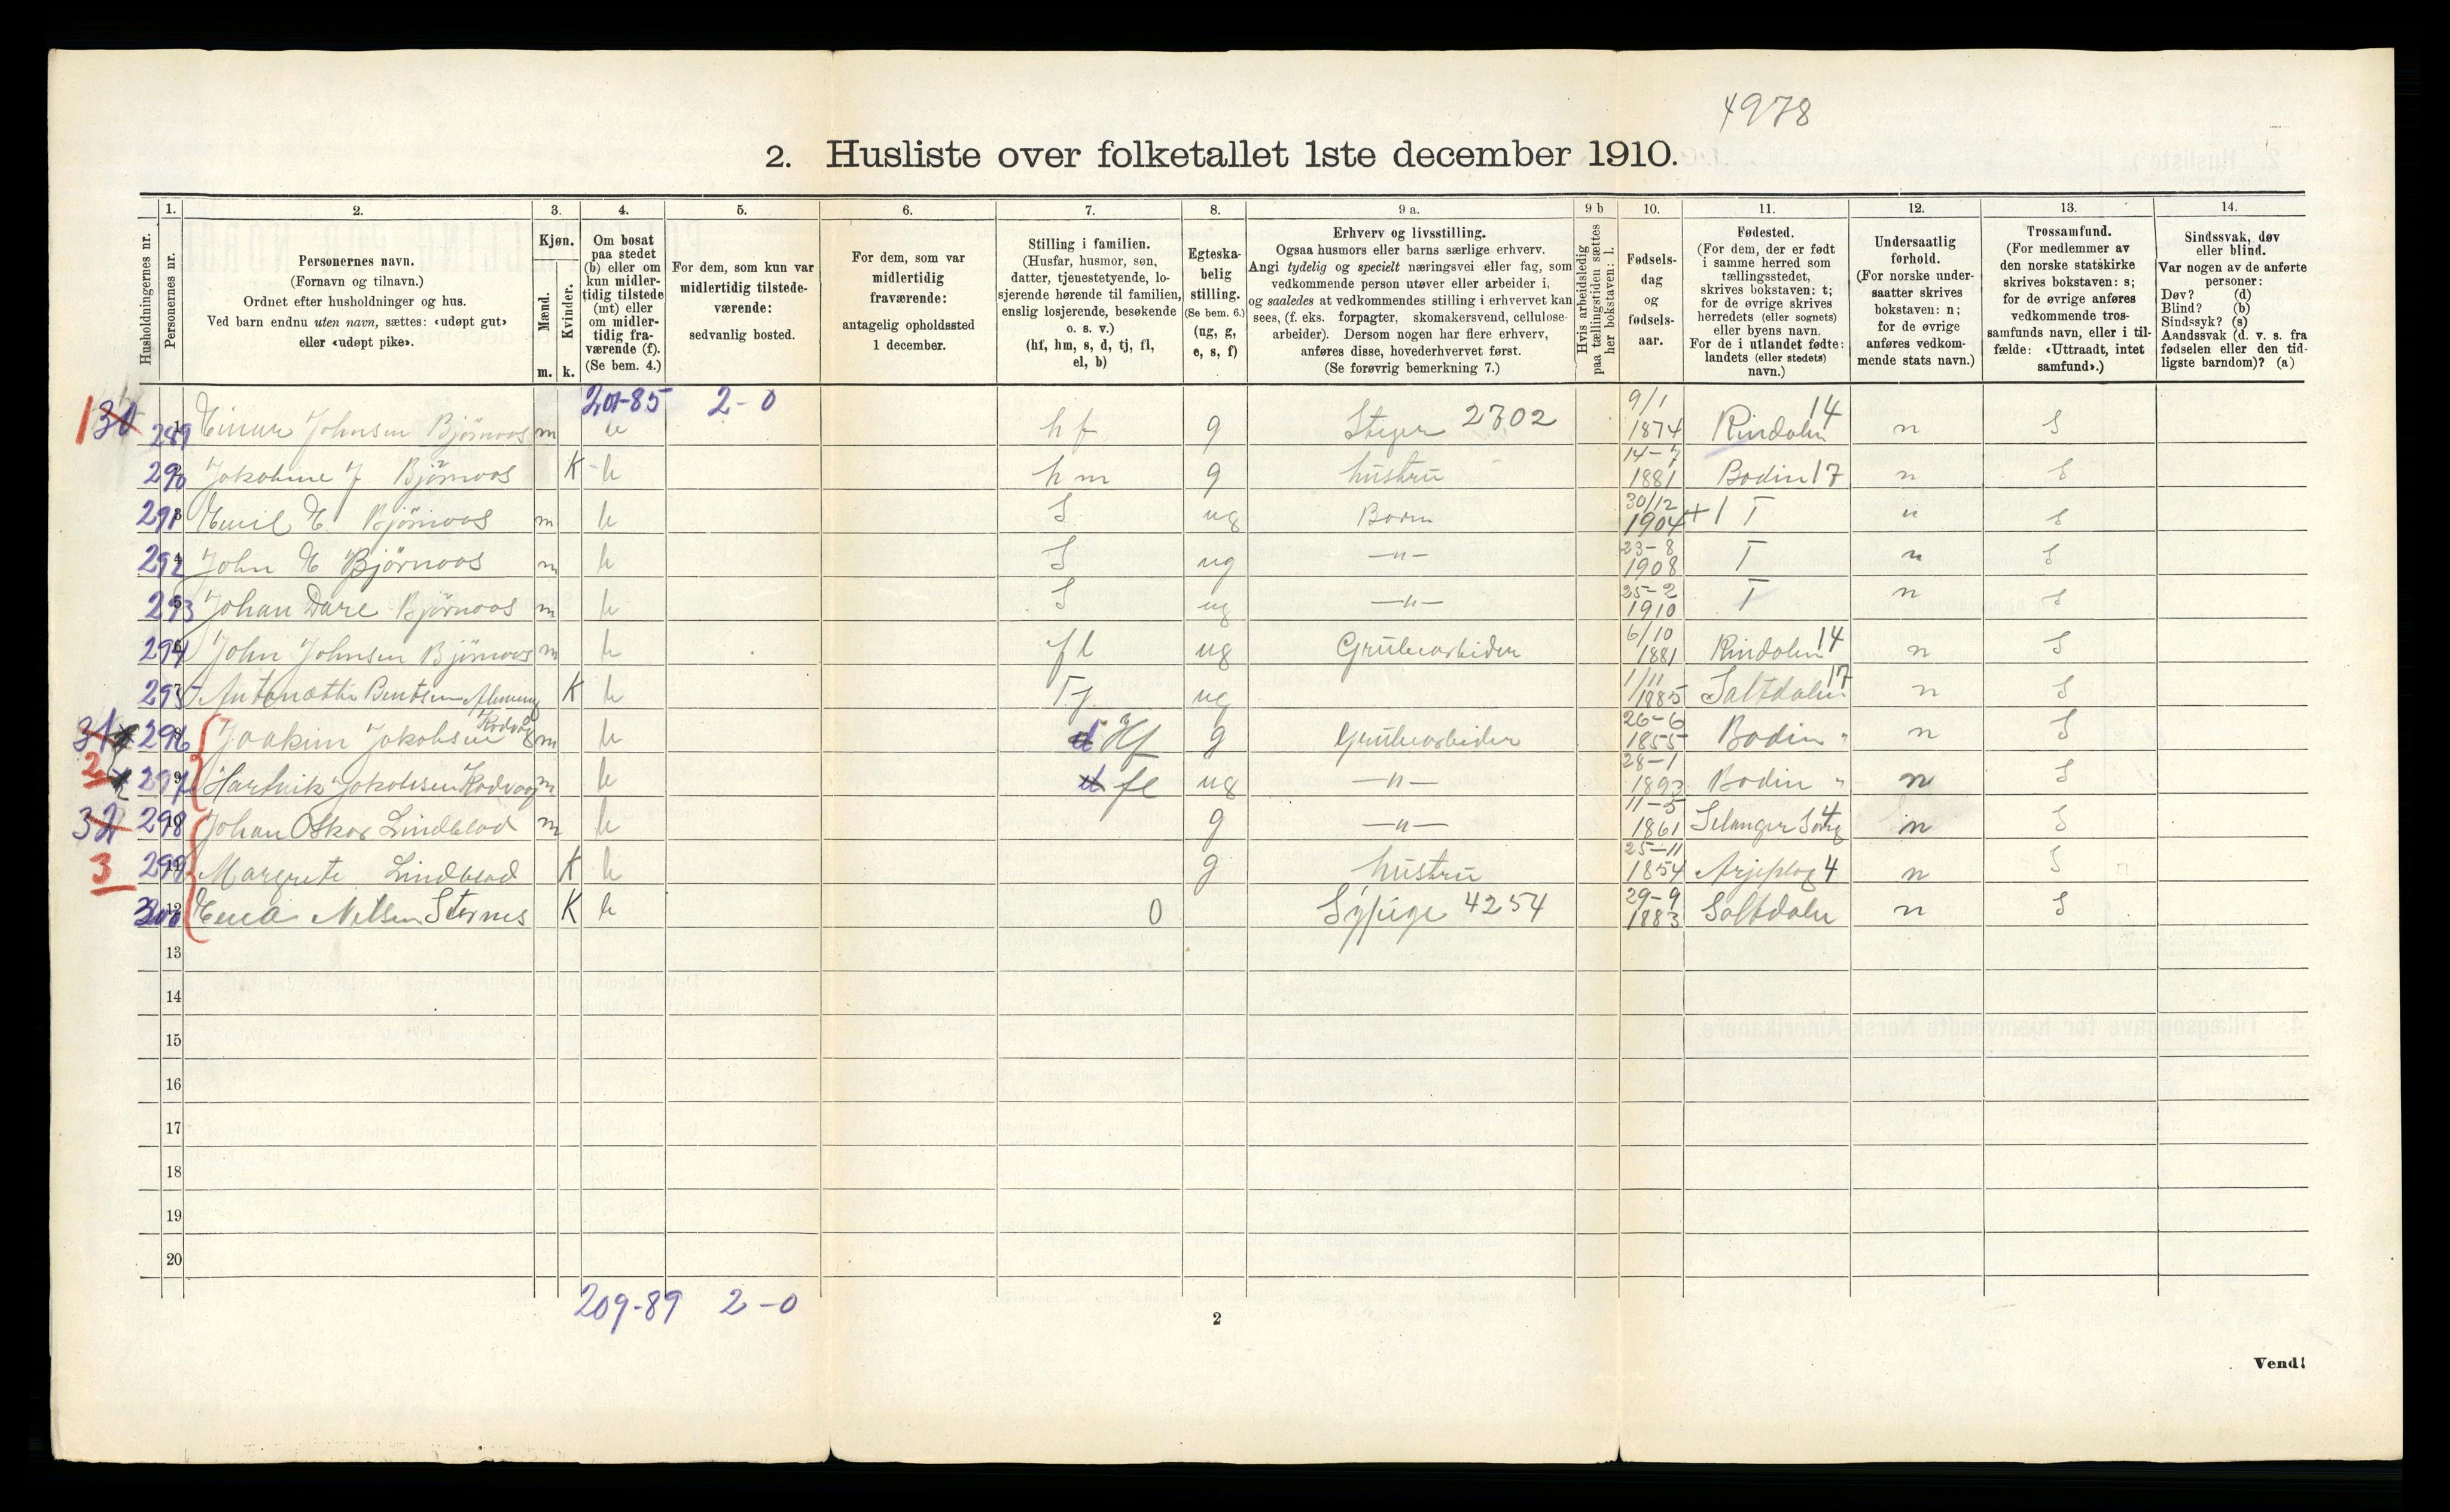 4978
2. Husliste over folketallet 1ste december 1910.
Husholdningernes nr.
1. 2. 3. 4. 5. 6. 7. 8. 9 a. 9 b 10. 11. 12. 13. 14.
Personernes nr.
Personernes navn.
(Fornavn og tilnavn.)
Ordnet efter husholdninger og hus.
Ved barn endnu uten navn, sættes: «udøpt gut»
eller «udøpt pike».
Kjøn.
Mænd.
Kvinder.
m. k.
Om bosat
paa stedet
(b) eller om
kun midler-
tidig tilstede
(mt) eller
om midler-
tidig fra-
værende (f).
(Se bem. 4.)
For dem, som kun var
midlertidig tilstede-
værende:
sedvanlig bosted.
For dem, som var
midlertidig
fraværende:
antagelig opholdssted
1 december.
Stilling i familien.
(Husfar, husmor, søn,
datter, tjenestetyende, lo-
sjerende hørende til familien,
enslig losjerende, besøkende
o. s. v.)
(hf, hm, s, d, tj, fl,
el, b)
Egteska-
belig
stilling.
(Se bem. 6.)
(ug, g,
e, s, f)
Erhverv og livsstilling.
Ogsaa husmors eller barns særlige erhverv.
Angi tydelig og specielt næringsvei eller fag, som
vedkommende person utøver eller arbeider i,
og saaledes at vedkommendes stilling i erhvervet kan
sees, (f. eks. forpagter, skomakersvend, cellulose-
arbeider). Dersom nogen har flere erhverv,
anføres disse, hovederhvervet først.
(Se forøvrig bemerkning 7.)
Hvis arbeidsledig
paa tællingstiden sættes
her bokstaven: l.
Fødsels-
dag
og
fødsels-
aar.
Fødested.
(For dem, der er født
i samme herred som
tællingsstedet,
skrives bokstaven: t;
for de øvrige skrives
herredets (eller sognets)
eller byens navn.
For de i utlandet fødte:
landets (eller stedets)
navn.)
Undersaatlig
forhold.
(For norske under-
saatter skrives
bokstaven: n;
for de øvrige
anføres vedkom-
mende stats navn.)
Trossamfund.
(For medlemmer av
den norske statskirke
skrives bokstaven: s;
for de øvrige anføres
vedkommende tros-
samfunds navn, eller i til-
fælde: «Uttraadt, intet
samfund».)
Sindssvak, døv
eller blind.
Var nogen av de anførte
personer:
Døv? (d)
Blind? (b)
Sindssyk? (s)
Aandssvak (d. v. s. fra
fødselen eller den tid-
ligste barndom)? (a)
201-85 2-0
1 30 289 1 Einar Johnsen Bjørnaas m b hf g Stiger 2702 9/1 1874 Rindalen 14 n S
290 Jakobine J Bjørnaas K b hm g hustru 14-7 1881 Bodin 17 n S
291 3 Emil E. Bjørnaas m b S ug Barn 30/12 1904 +1 T n S
292 4 John E Bjørnaas m b S ug -"- 23-8 1908 T n S
293 5 Johan Dare Bjørnaas m b S ug -"- 25-2 1910 T n S
294 6 John Johnsen Bjørnaas m b fl ug Grubearbider 6/10 1881 Rindalen 14 n S
295 7 Bentsen K b Tj ug 1/11 1885 Saltdalen 17 n S
31 296 8 Joakim Jakobsen Kodvaag m b Hf g Grubearbider 26-6 1855 Bodin " n S
2 297 9 Hartvik Jakobsen Kodvaag m b fl ug -"- 28-1 1893 Bodin " n S
32 298 10 Johan Oskar Lindblad m b g -"- 11-5 1861 Selanger 4 n S
3 299 11 Margrete Lindblad K b g hustru 25-11 1854 Arjeplog 4 n S
300 12 Nilsen K b 0 Sypige 4254 29-9 1883 Saltdalen n S
13
14
15
16
17
18
19
20
209-89 2-0
2
Vend!